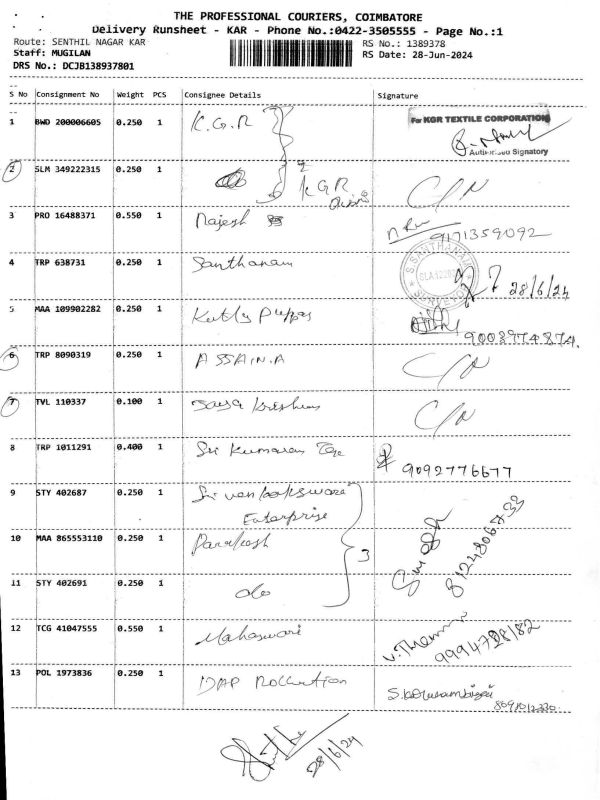 THE PROFESSIONAL COURIERS, COIMBATORE
Delivery Runsheet - KAR - Phone No.:0422-3505555 - Page No.:1
Route: SENTHIL NAGAR KAR
RS No.: 1389378
Staff: MUGILAN
RS Date: 28-Jun-2024
DRS No.: DCJB138937801
S No Consignment No Weight PCS Consignee Details Signature
1 BWD 200006605 0.250 1 K.G.R For KGR TEXTILE CORPORATION
Authorised Signatory
2 SLM 349222315 0.250 1 KGR C/N
3 PRO 16488371 0.550 1 Rajesh 9171359092
4 TRP 638731 0.250 1 Santhanam S.SANTHANAM SURVEYOR 28/6/24
5 MAA 109902282 0.250 1 9003974874.
6 TRP 8090319 0.250 1 ASSAIN.A C/N
7 TVL 110337 0.100 1 Jaya Krishna C/N
8 TRP 1011291 0.400 1 Sri Kumaran Tex 9092776677
9 STY 402687 0.250 1 Sri venkateswara
Enterprise
10 MAA 865553110 0.250 1 Parakash 3 8124806733
11 STY 402691 0.250 1 do
12 TCG 41047555 0.550 1 Mahaswari 9994728182
13 POL 1973836 0.250 1 DAP
28/6/24